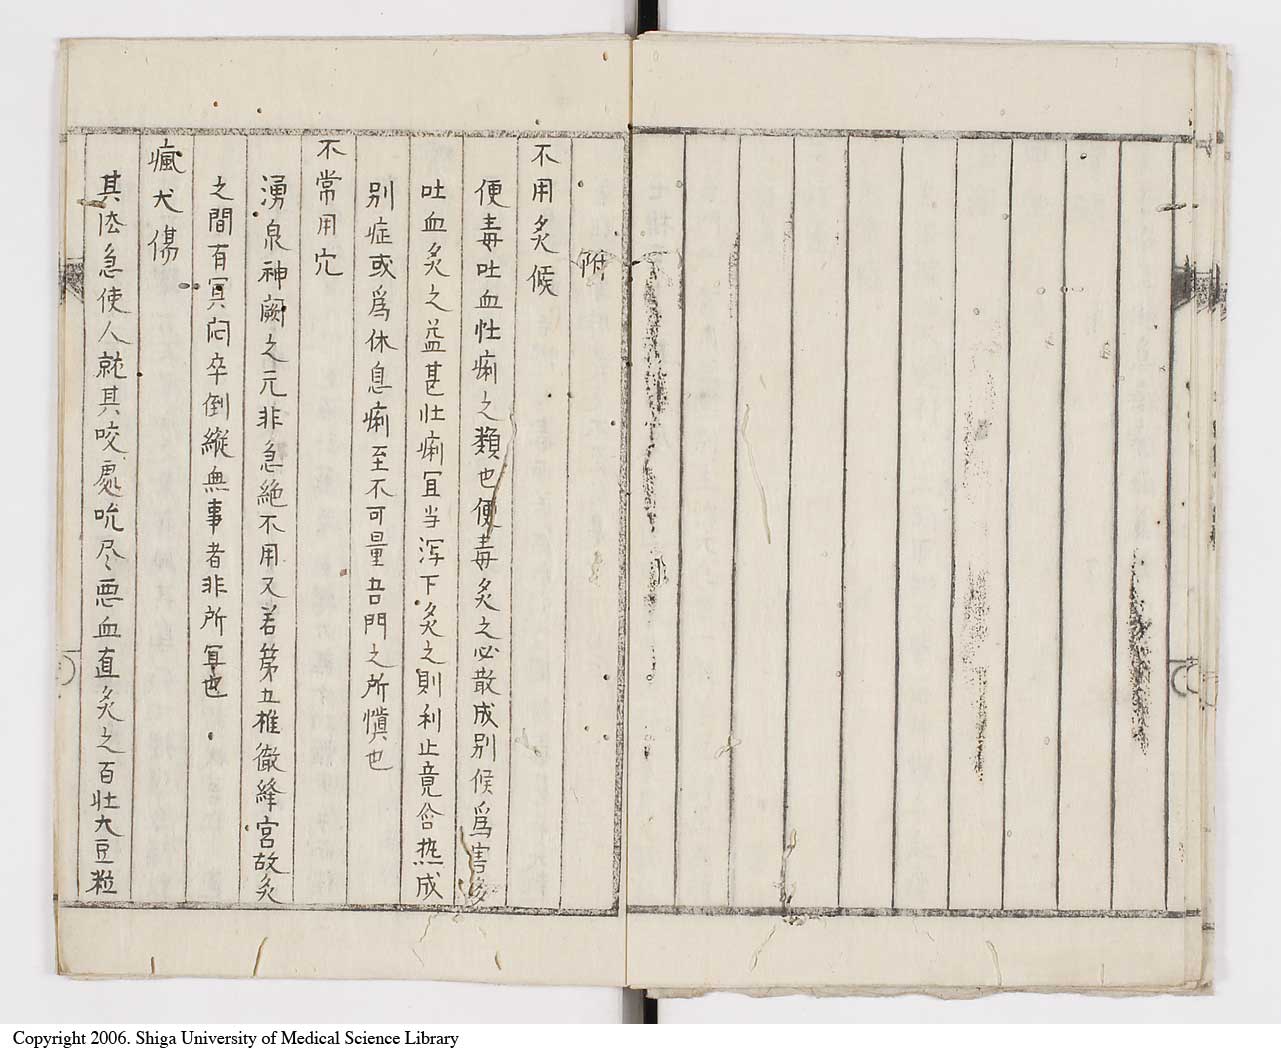 附
不用灸候
便毒吐血性痢之類也便毒灸之必散成別候爲害多
吐血灸之益甚壮痢冝当泻下灸之則利止竟含热成
別症或爲休息痢至不可量吾門之所慎也
不常用穴
湧泉神闕之元非急絶不用又若第五椎徹絳宮故灸
之間有冥闷卒倒縦無事者非所冝也
瘋犬傷
其法急使人就其咬處吮尽悪血直灸之百壮大豆粒
Copyright 2006. Shiga University of Medical Science Library